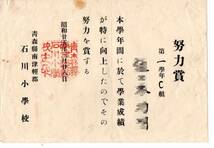 努力賞
第一學年C組
本學年間に於て學業成績
が特に向上したのでその
努力を賞する
昭和廿五年三月廿八日
青森縣南津軽郡
石川小學校